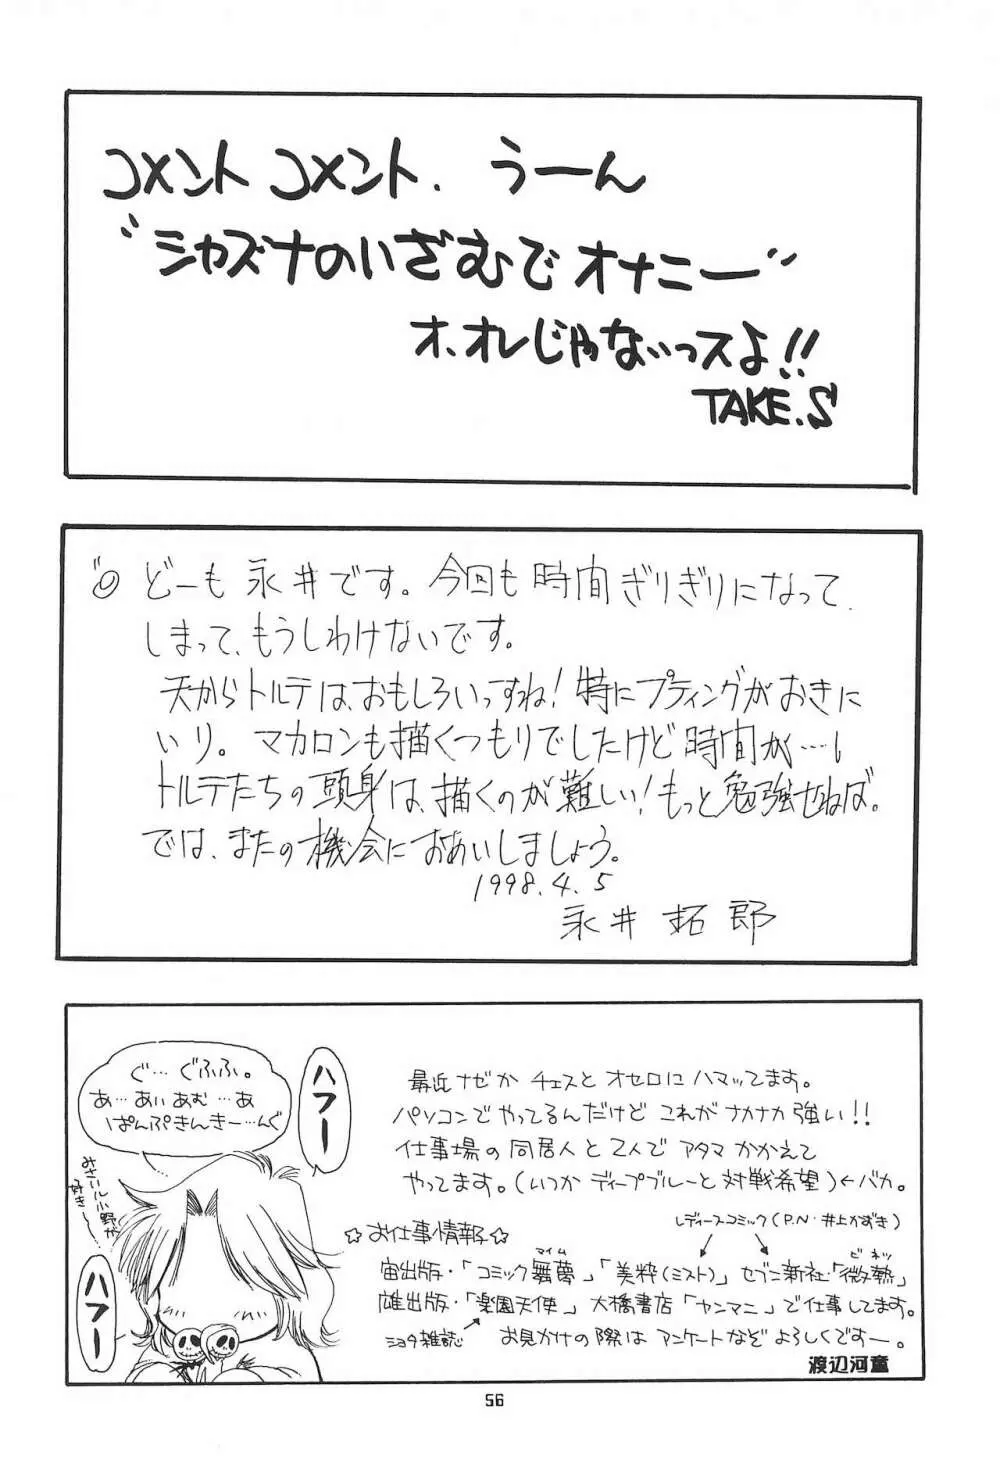 コメント コメント. うーん
"シャズナのいざむでオナニー"
オ、オレじゃないっスよ!!
TAKE.S
どーも 永井です。今回も時間ぎりぎりになって
しまって、もうしわけないです。
天からトルテは、おもしろいっすね!特にプティングがおきに
いり。マカロンも描くつもりでしたけど時間が…。
トルテたちの頭身は、描くのが難しい!もっと勉強せねば。
では、またの機会におあいしましょう。
1998.4.5
永井 拓郎
ぐ… ぐふふ。
あ…あいあむ…あ
ぱんぷきんきー…んぐ
ハフー
みさいル小野が
好き
ハフー
最近ナゼか チェスと オセロに ハマッてます。
パソコンでやってるんだけど これがナカナカ強い!!
仕事場の同居人と2人でアタマかかえて
やってます。(いつかディープブルーと対戦希望)←バカ。
レディースコミック(P.N.井上かずき)
☆お仕事情報☆
マイム
ビネツ
宙出版・「コミック舞夢」「美粋(ミスト)」セブン新社「微熱」
雄出版・「楽園天使」 大橋書店「ヤンマニ」で仕事してます。
ショタ雑誌
お見かけの際は アンケートなぞ よろしくですー。
渡辺河童
56